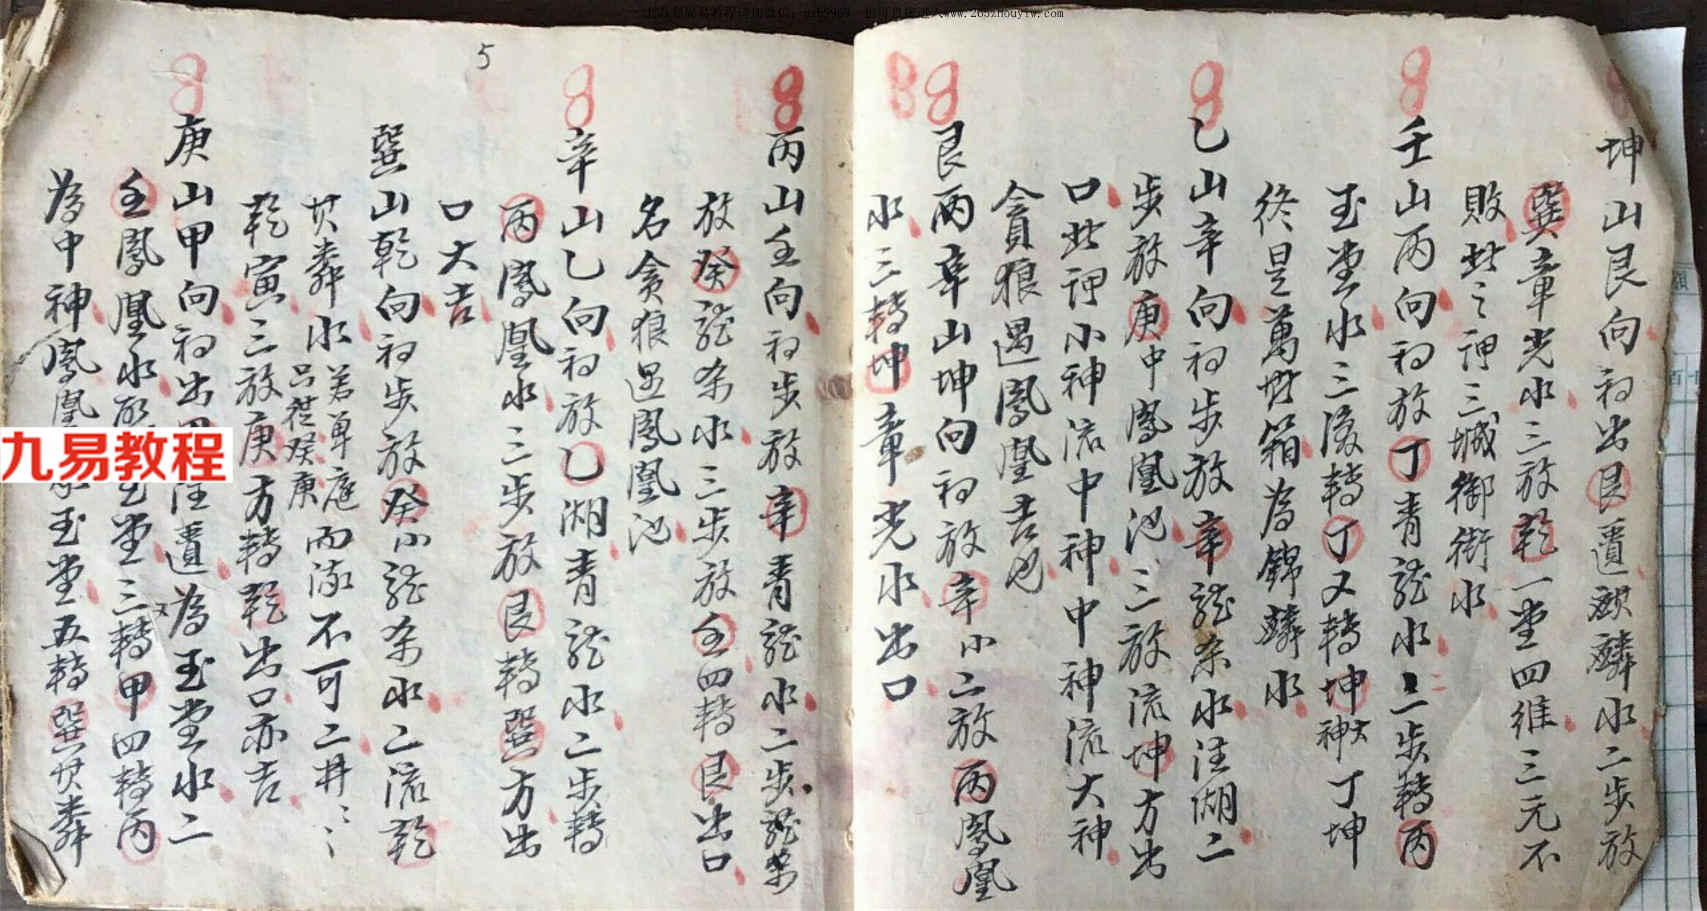 坤山艮向初出艮遺麒麟水二步放
巽章光水三放乾一堂四維三元不
敗此之謂三城御街水
壬山丙向初放丁青龍水二步轉丙
玉堂水三後轉丁又轉坤神大丁坤
終是萬世箱為錦麟水
乙山辛向初步放辛龍条水注湖二
步放庚中鳳凰池三放流坤方出
口此謂小神流中神中神流大神
貪狼遇鳳凰吉也
艮丙辛山坤向初放辛小二放丙鳳凰
水三轉坤章光水出口
5
丙山壬向初步放辛青龍水二步
放癸龍条水三步放壬四轉艮出口
名貪狼遇鳳凰池
辛山乙向初放乙湖青龍水二步轉
丙鳳凰水三步放艮轉巽方出
口大吉
巽山乾向初步放癸小龍条水乙流乾
水若單庭而流不可二井
只從癸庚
乾寅三放庚方轉乾出口亦吉
庚山甲向初出注遺為玉堂水二
壬鳳凰水堂三轉甲四轉丙
為中神鳳凰玉堂五轉巽
九易教程
www.265zhouyiw.com